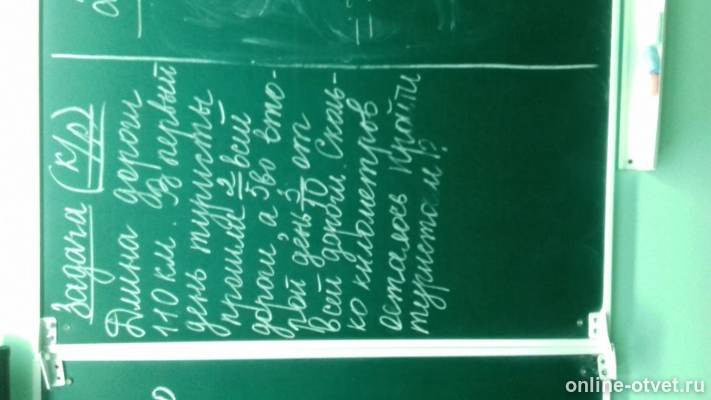 Задача (к/р)
Длина дороги
110 км. В первый
день туристы
прошли 2/5 всей
дороги, а во вто-
рой день 3/10 от
всей дороги. Сколь-
ко километров
осталось пройти
туристам?
online-otvet.ru